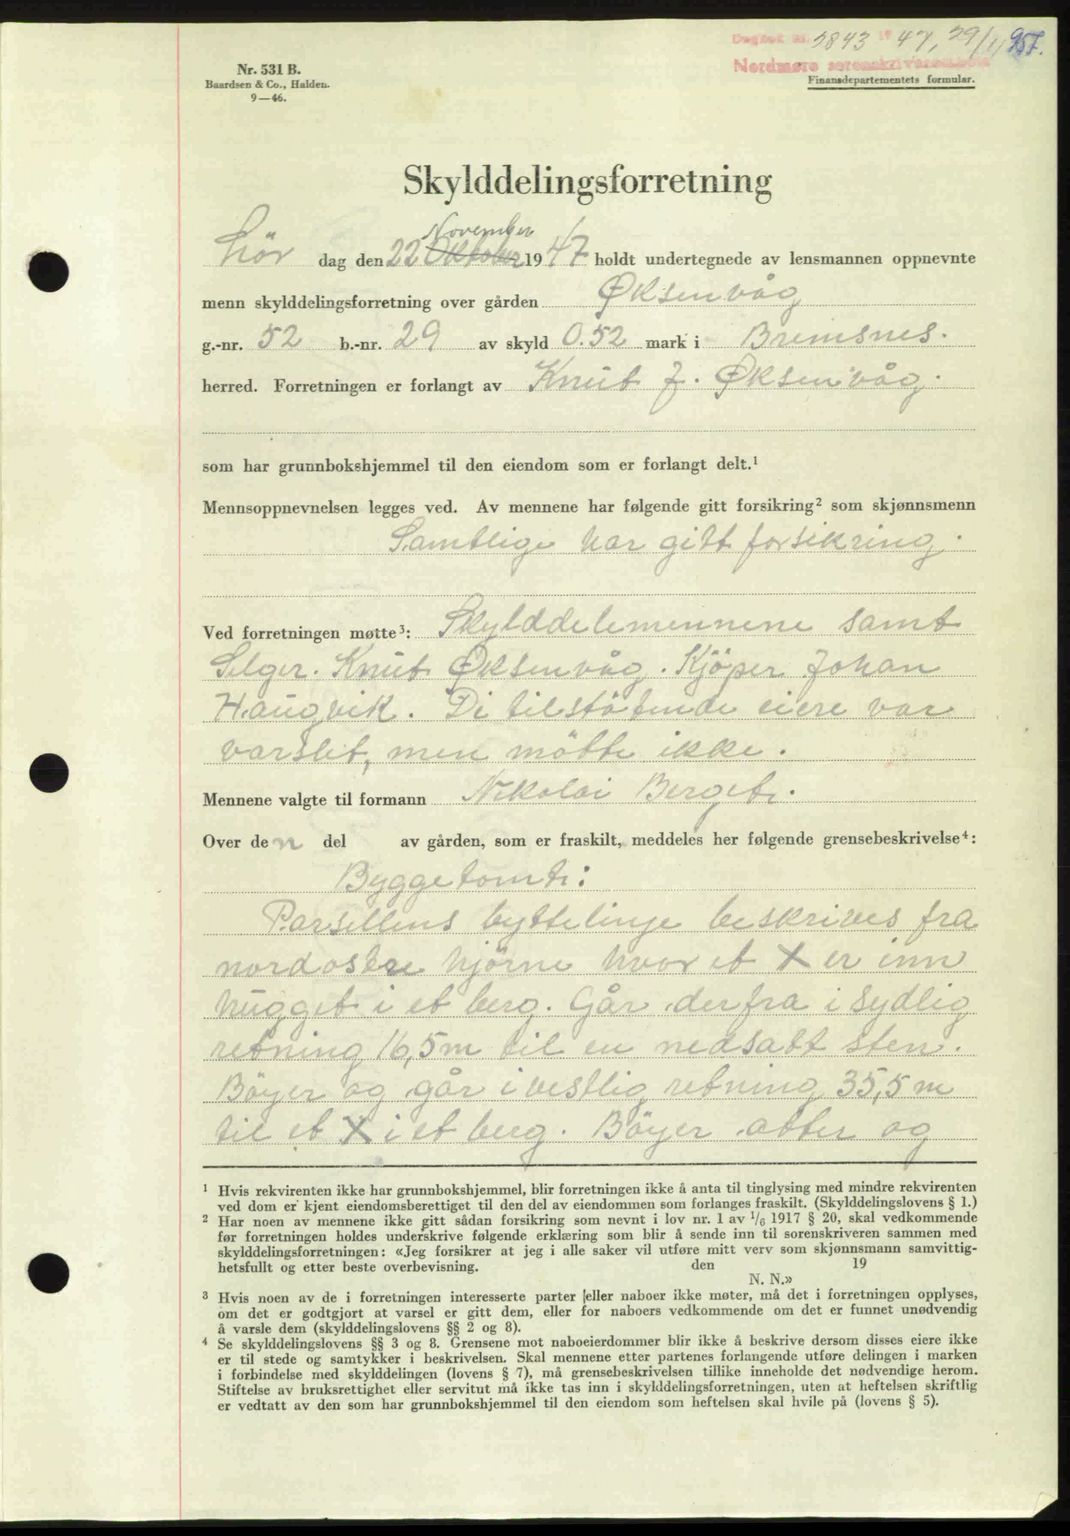 Dagbok nr. 2843 1947, 29/11 957.
Nordmøre sorenskriverembete
Nr. 531 B.
Baardsen & Co., Halden.
9—46.
Finansdepartementets formular.
Skylddelingsforretning
Lör dag den 22 November Oktober 1947 holdt undertegnede av lensmannen oppnevnte
menn skylddelingsforretning over gården Øksenvåg
g.-nr. 52 b.-nr. 29 av skyld 0.52 mark i Bremsnes.
herred. Forretningen er forlangt av Knut J. Øksenvåg.
som har grunnbokshjemmel til den eiendom som er forlangt delt.¹
Mennsoppnevnelsen legges ved. Av mennene har følgende gitt forsikring² som skjønnsmenn
Samtlige har gitt forsikring.
Ved forretningen møtte³: Skylddelemennene samt
Selger. Knut Øksenvåg. Kjöper Johan
Haugvik. De tilstötende eiere var
varslet, men mötte ikke.
Mennene valgte til formann Nikolai Bergete.
Over den del av gården, som er fraskilt, meddeles her følgende grensebeskrivelse⁴:
Byggetomte:
Parsellens byttelinje beskrives fra
nordostre hjörne hvor et X er inn
hugget i et berg. Går derfra i sydlig
retning 16,5 m til en nedsatt sten.
Böyer og går i vestlig retning 35,5 m
til et X i et berg. Böyer atter og
¹ Hvis rekvirenten ikke har grunnbokshjemmel, blir forretningen ikke å anta til tinglysing med mindre rekvirenten
ved dom er kjent eiendomsberettiget til den del av eiendommen som forlanges fraskilt. (Skylddelingslovens § 1.)
² Har noen av mennene ikke gitt sådan forsikring som nevnt i lov nr. 1 av 1/6 1917 § 20, skal vedkommende
før forretningen holdes underskrive følgende erklæring som blir å sende inn til sorenskriveren sammen med
skylddelingsforretningen: «Jeg forsikrer at jeg i alle saker vil utføre mitt verv som skjønnsmann samvittig-
hetsfullt og etter beste overbevisning. den 19
N. N.»
³ Hvis noen av de i forretningen interesserte parter eller naboer ikke møter, må det i forretningen opplyses,
om det er godtgjort at varsel er gitt dem, eller for naboers vedkommende om det er funnet unødvendig
å varsle dem (skylddelingslovens §§ 2 og 8).
⁴ Se skylddelingslovens §§ 3 og 8. Grensene mot naboeierdommer blir ikke å beskrive dersom disses eiere ikke
er til stede og samtykker i beskrivelsen. Skal mennene etter partenes forlangende utføre delingen i marken
i forbindelse med skylddelingen (lovens § 7), må grensebeskrivelsen tillike inneholde det nødvendige herom.
Stiftelse av bruksrettighet eller servitut må ikke tas inn i skylddelingsforretningen, uten at heftelsen skriftlig
er vedtatt av den som har grunnbokshjemmel til den eiendom som heftelsen skal hvile på (lovens § 5).